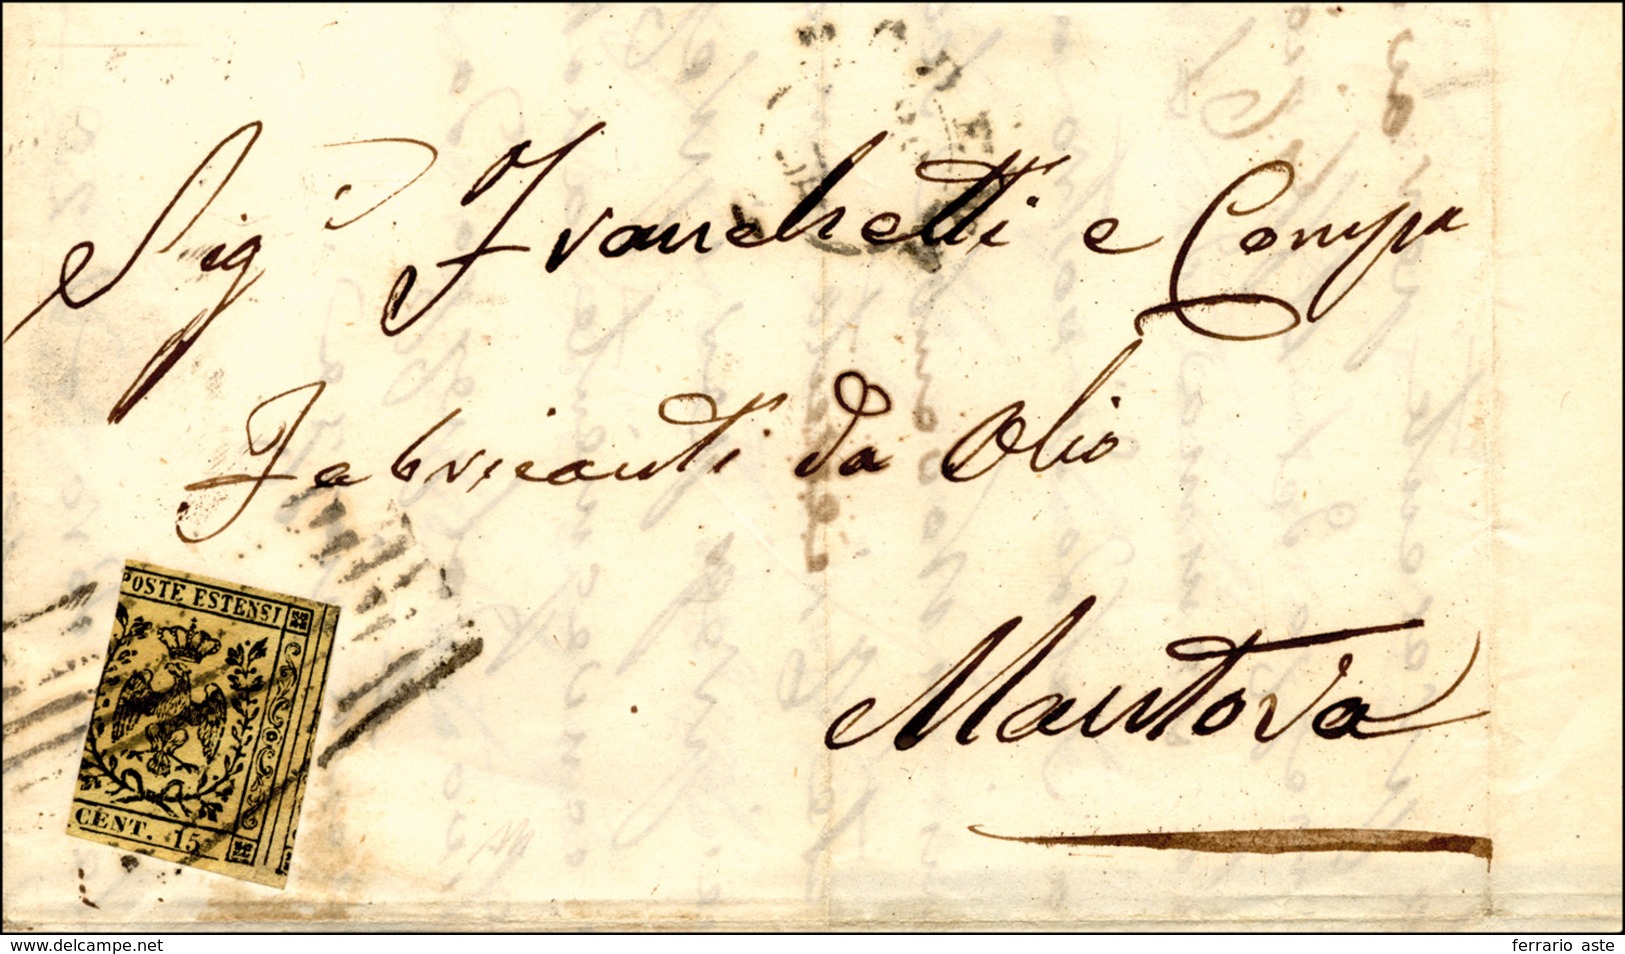 Sig.i Franchetti e Compa
Fabricanti da Olio
Mantova
POSTE ESTENSI
CENT. 15
www.delcampe.net
ferrario aste